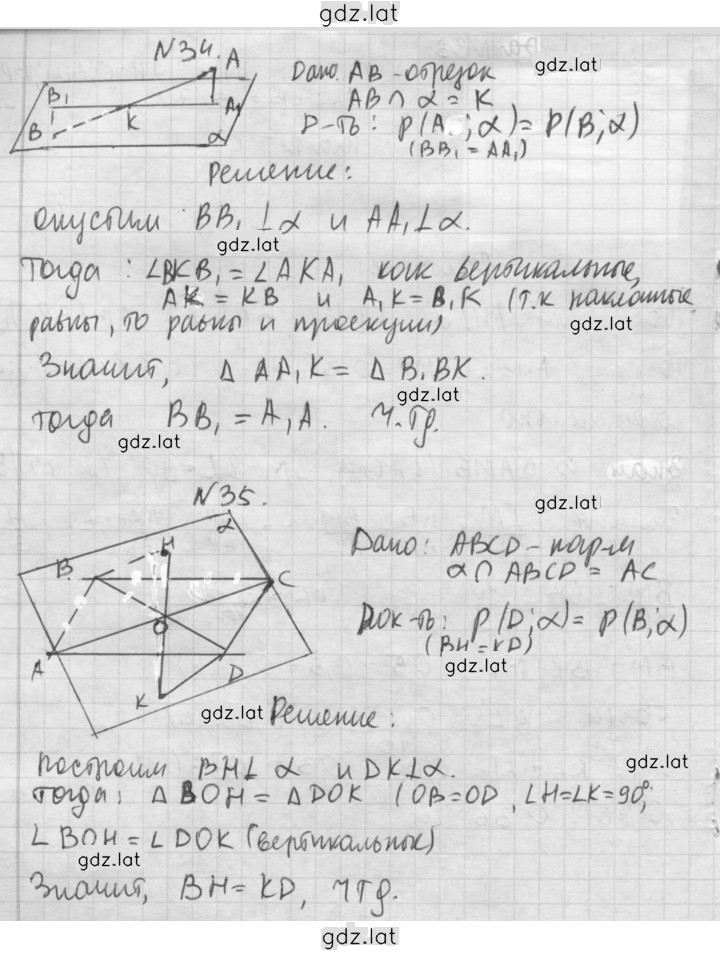 gdz.lat
N34.
A
B₁
A₁
B
K
α
Дано: AB - отрезок
gdz.lat
AB ∩ α = K
Д-ть: ρ(A; α) = ρ(B; α)
(BB₁ = AA₁)
Решение:
опустим BB₁ ⊥ α и AA₁ ⊥ α.
gdz.lat
Тогда: ∠BKB₁ = ∠AKA₁ как вертикальные,
AK = KB и A₁K = B₁K (т.к наклонные
равны, то равны и проекции)
gdz.lat
Значит, Δ AA₁K = Δ B₁BK.
gdz.lat
тогда BB₁ = A₁A. Ч.тд.
gdz.lat
N35.
gdz.lat
H
α
B
C
O
A
D
K
Дано: ABCD - пар-м
α ∩ ABCD = AC
Док-ть: ρ(D; α) = ρ(B; α)
(BH = KD)
gdz.lat
gdz.lat
Решение:
построим BH ⊥ α и DK ⊥ α.
gdz.lat
тогда: Δ BOH = Δ DOK (OB = OD, ∠H = ∠K = 90°,
∠ BOH = ∠ DOK (вертикальные)
gdz.lat
Значит, BH = KD, ЧТД.
gdz.lat